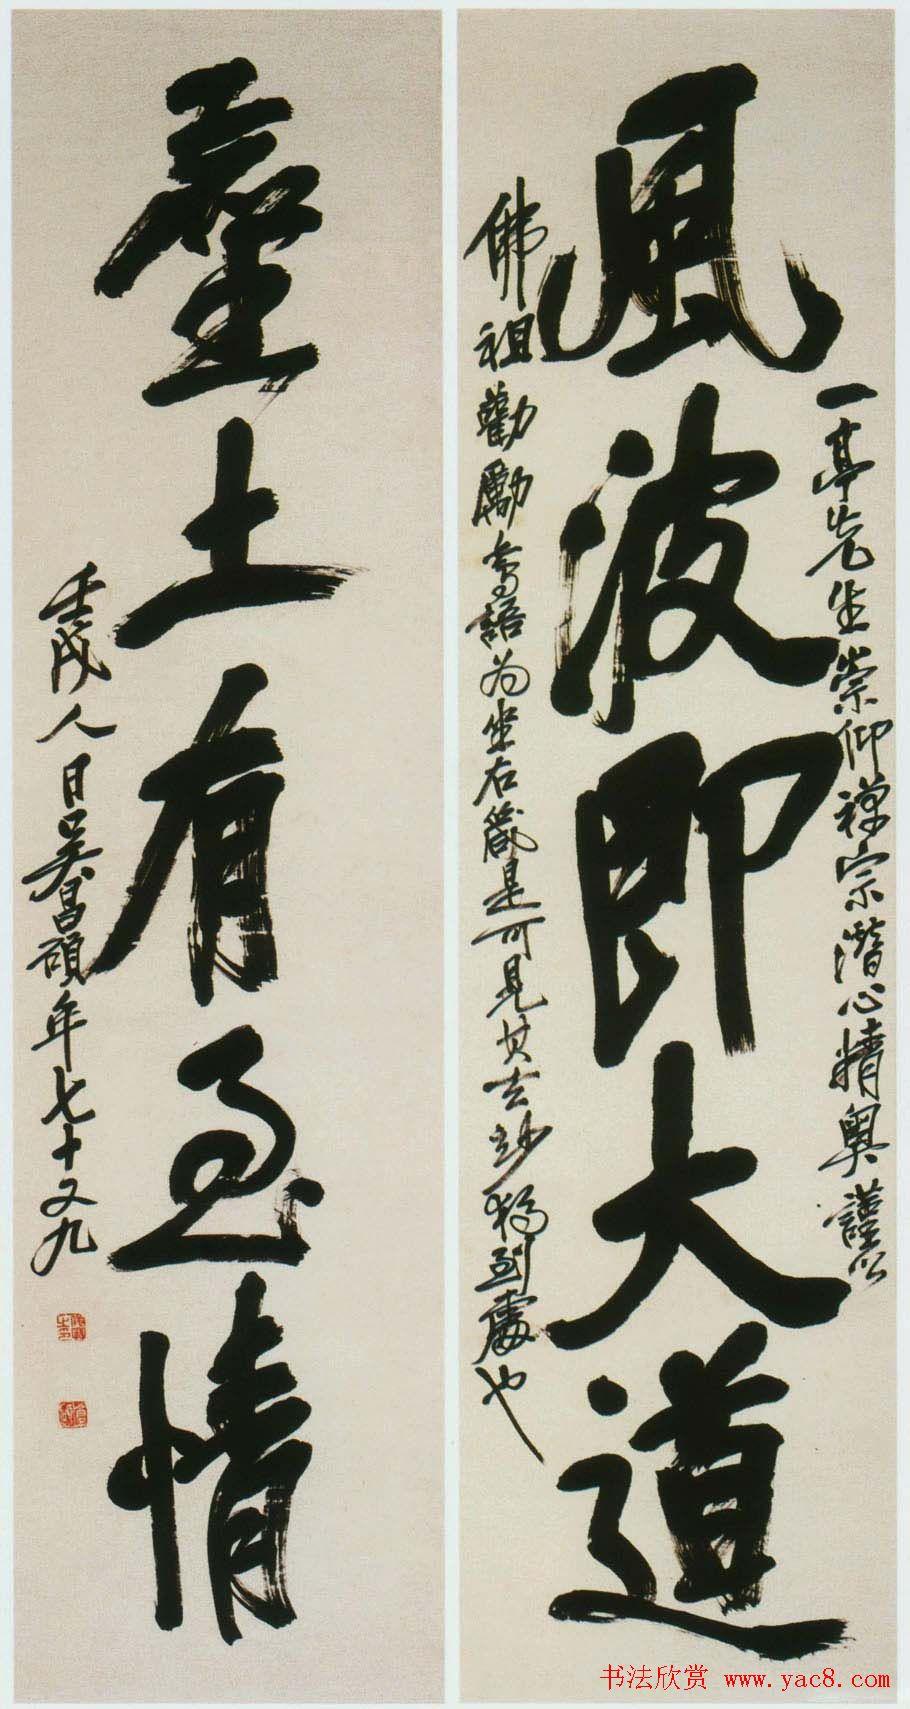 風波即大道
一亭先生崇仰禪宗潛心精奧謹以
佛祖勸勵寄語為坐右箴是可見其玄妙獨到處也
塵土有至情
壬戌人日吳昌碩年七十又九
书法欣赏 www.yac8.com